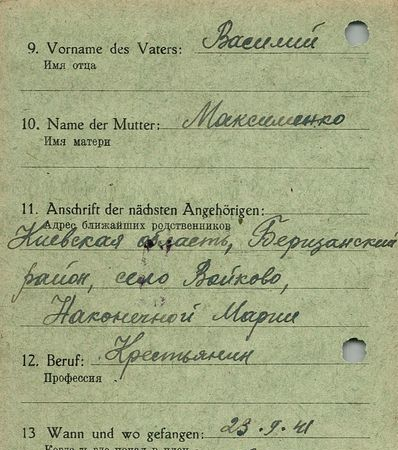 9. Vorname des Vaters: Василий
Имя отца
10. Name der Mutter: Максименко
Имя матери
11. Anschrift der nächsten Angehörigen:
Адрес ближайших родственников
Киевская область, Беризанский
район, село Войково,
Наконечной Марии
12. Beruf: Крестьянин
Профессия
13 Wann und wo gefangen: 23.9.41
Когда и где попал в плен